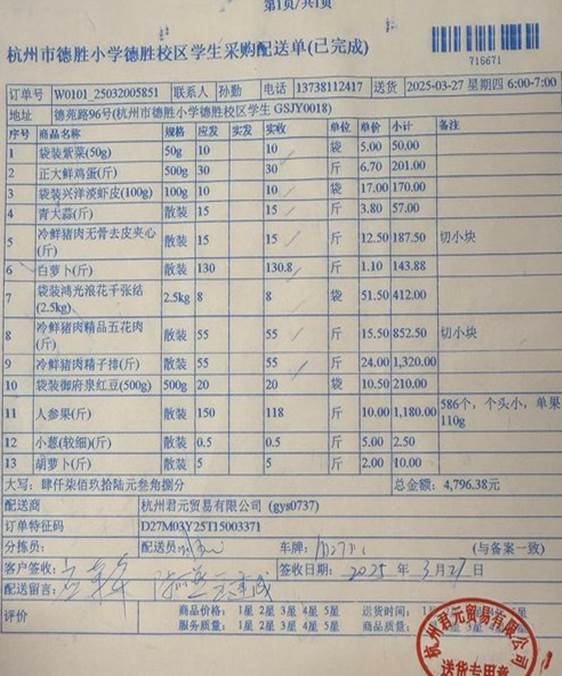 第1页/共1页
杭州市德胜小学德胜校区学生采购配送单(已完成)
716671
订单号 W0101_25032005851 联系人 孙勤 电话 13738112417 送货 2025-03-27 星期四 6:00-7:00
地址 德苑路96号(杭州市德胜小学德胜校区学生 GSJY0018)
序号 商品名称 规格 应发 实发 实收 单位 单价 小计 备注
1 袋装紫菜(50g) 50g 10 10 袋 5.00 50.00
2 正大鲜鸡蛋(斤) 500g 30 30 斤 6.70 201.00
3 袋装兴洋淡虾皮(100g) 100g 10 10 袋 17.00 170.00
4 青大蒜(斤) 散装 15 15 斤 3.80 57.00
5 冷鲜猪肉无骨去皮夹心(斤) 散装 15 15 斤 12.50 187.50 切小块
6 白萝卜(斤) 散装 130 130.8 斤 1.10 143.88
7 袋装鸿光浪花千张结(2.5kg) 2.5kg 8 8 袋 51.50 412.00
8 冷鲜猪肉精品五花肉(斤) 散装 55 55 斤 15.50 852.50 切小块
9 冷鲜猪肉精子排(斤) 散装 55 55 斤 24.00 1,320.00
10 袋装御府泉红豆(500g) 500g 20 20 袋 10.50 210.00
11 人参果(斤) 散装 150 118 斤 10.00 1,180.00 586个，个头小，单果110g
12 小葱(较细)(斤) 散装 0.5 0.5 斤 5.00 2.50
13 胡萝卜(斤) 散装 5 5 斤 2.00 10.00
大写：肆仟柒佰玖拾陆元叁角捌分 总金额：4,796.38元
配送商 杭州君元贸易有限公司 (gys0737)
订单特征码 D27M03Y25T15003371
分拣员： 配送员： 车牌： (与备案一致)
客户签收： 签收日期：2025 年 3月27日
配送留言：
评价 商品价格：1星 2星 3星 4星 5星 送货时间：
服务质量：1星 2星 3星 4星 5星 商品质量：
杭州君元贸易有限公司
送货专用章